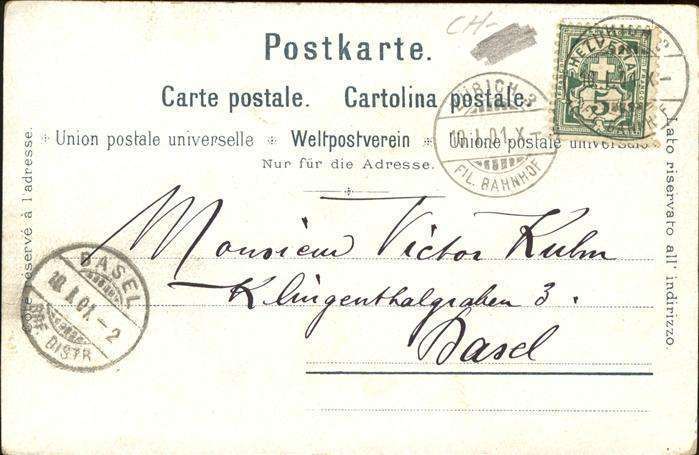 CH-
Postkarte.
Carte postale. Cartolina postale.
Union postale universelle * Weltpostverein * Unione postale universale
Nur für die Adresse.
HELVETIA
5
ZÜRICH 3
18.I.01.X-
FIL. BAHNHOF
Côté réservé à l'adresse.
Lato riservato all' indirizzo.
Monsieur Victor Kuhn
Klingenthalgraben 3.
Basel
BASEL
18.I.01.-2
BRF. DISTR